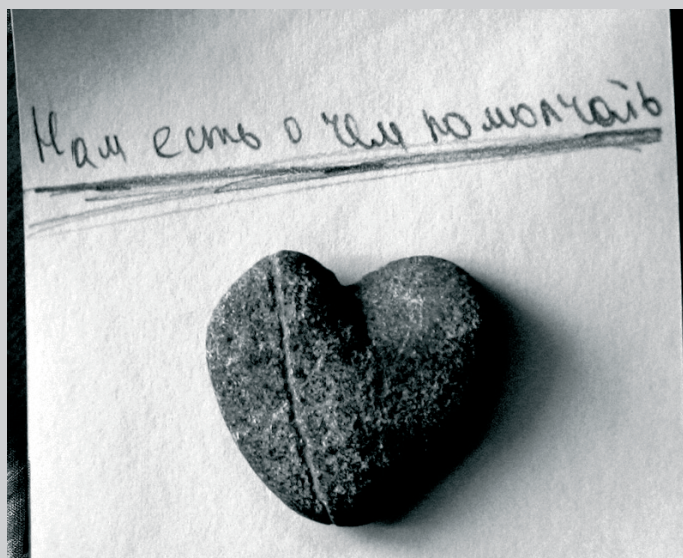 Нам есть о чем помолчать